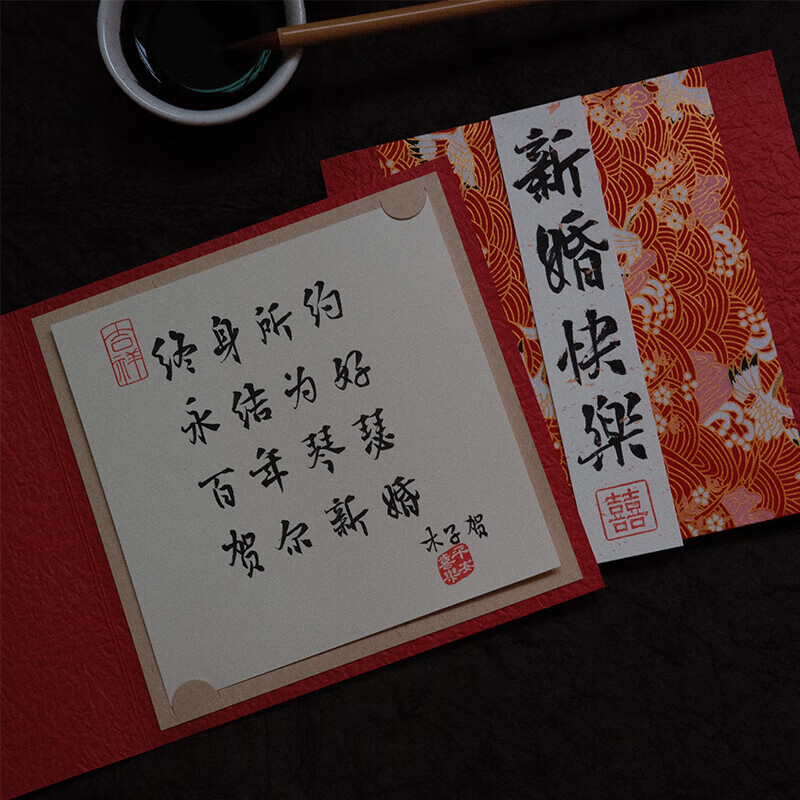 吉祥
终身所约
永结为好
百年琴瑟
贺尔新婚
木子贺
平安喜樂
新婚快樂
囍